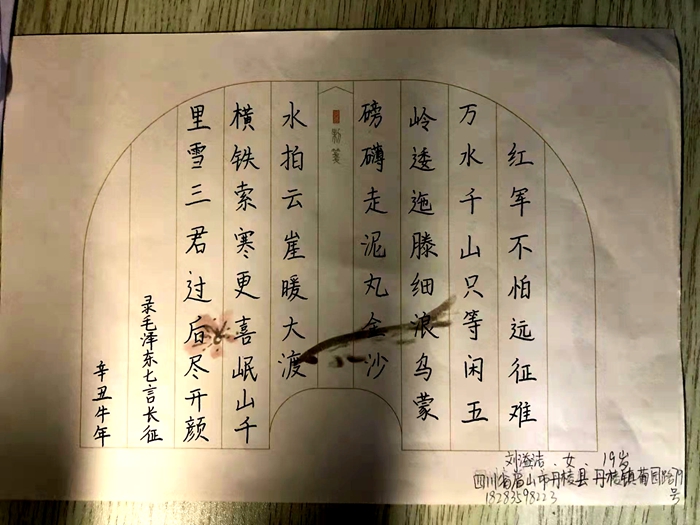 红军不怕远征难
万水千山只等闲五
岭逶迤滕细浪乌蒙
磅礴走泥丸金沙
水拍云崖暖大渡
横铁索寒更喜岷山千
里雪三君过后尽开颜
录毛泽东七言长征
辛丑牛年
洁.女.19岁
四川省眉山市丹棱县丹棱镇
号
18283598223